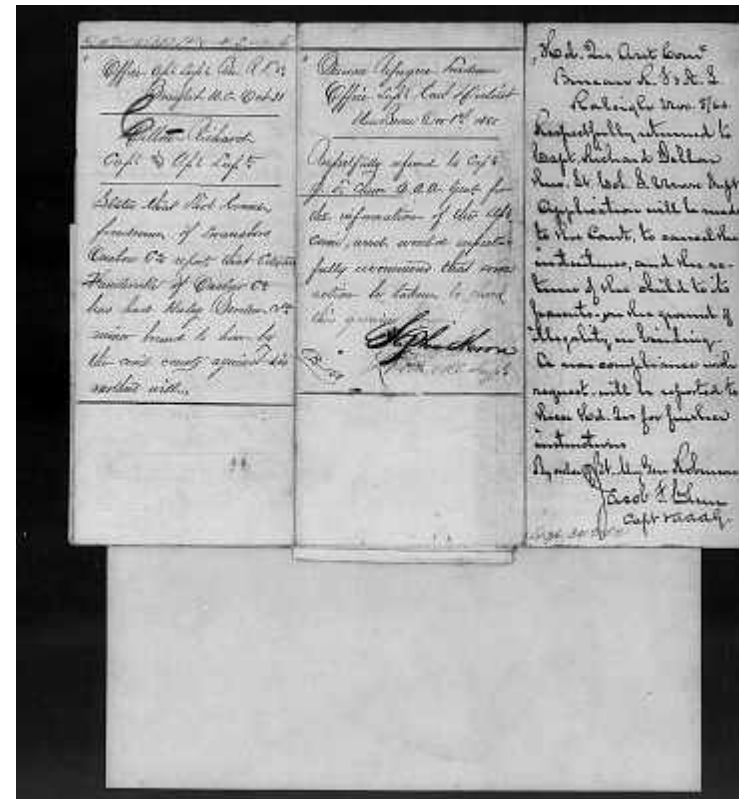 Office Asst Supt Bu R F &c
Beaufort N.C. Oct 31
Dillon Richard
Capt & Asst Supt
States that
freedman of Swansboro
Onslow Co report that
of Onslow Co
has had
minor bound to him by
the civil county against his
mothers will.
Bureau Refugees Freedmen
Office Supt East District
New Berne Nov 1st 1866
Respectfully referred to Capt
J. F. Chur A.A.A. Genl for
the information of the Asst
Com, and would respect-
fully recommend that some
action be taken to
this
Stephen Moore
Hd. Qrs Asst Comr
Bureau R. F. & A. L.
Raleigh Nov. 5/66
Respectfully returned to
Capt. Richard Dillon
thro. Lt Col. S. Moore Supt
Application will be made
to the Court, to cancel the
indentures, and the re-
turn of the child to its
parents on the ground of
illegality in binding.
A non compliance with
request will be reported to
these Hd. Qrs for further
instructions
By order of Bt. Maj Gen Robinson
Jacob F. Chur
Capt & AAAG.